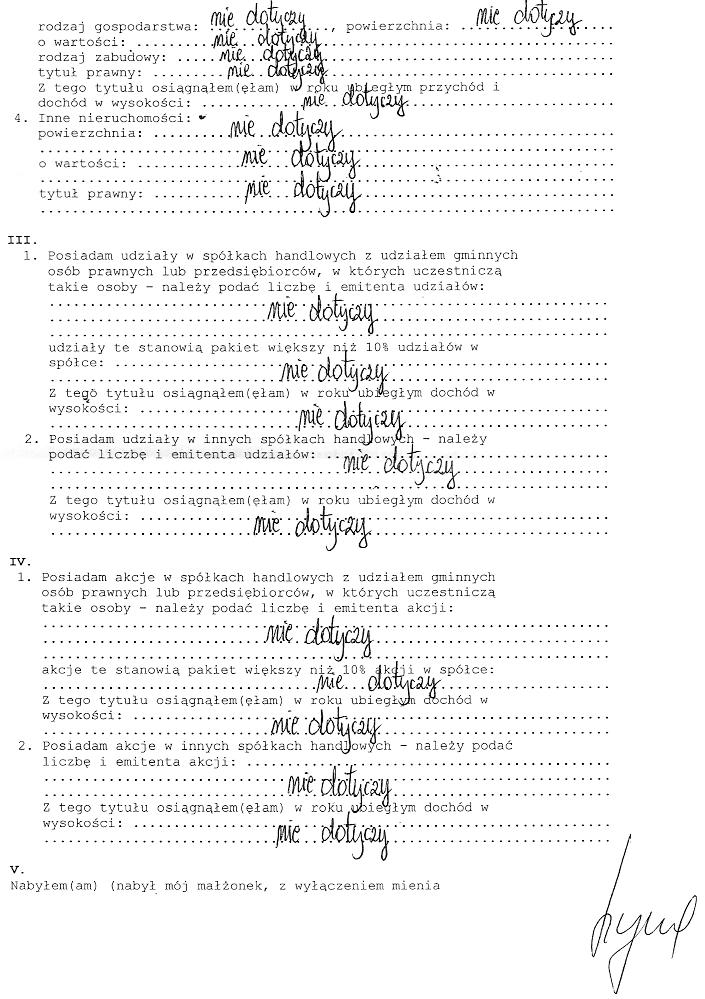 rodzaj gospodarstwa: nie dotyczy, powierzchnia: nie dotyczy
o wartości: nie dotyczy
rodzaj zabudowy: nie dotyczy
tytuł prawny: nie dotyczy
Z tego tytułu osiągnąłem(ęłam) w roku ubiegłym przychód i
dochód w wysokości: nie dotyczy
4. Inne nieruchomości:
powierzchnia: nie dotyczy
o wartości: nie dotyczy
tytuł prawny: nie dotyczy
III.
1. Posiadam udziały w spółkach handlowych z udziałem gminnych
osób prawnych lub przedsiębiorców, w których uczestniczą
takie osoby – należy podać liczbę i emitenta udziałów:
nie dotyczy
udziały te stanowią pakiet większy niż 10% udziałów w
spółce: nie dotyczy
Z tego tytułu osiągnąłem(ęłam) w roku ubiegłym dochód w
wysokości: nie dotyczy
2. Posiadam udziały w innych spółkach handlowych – należy
podać liczbę i emitenta udziałów: nie dotyczy
Z tego tytułu osiągnąłem(ęłam) w roku ubiegłym dochód w
wysokości: nie dotyczy
IV.
1. Posiadam akcje w spółkach handlowych z udziałem gminnych
osób prawnych lub przedsiębiorców, w których uczestniczą
takie osoby – należy podać liczbę i emitenta akcji:
nie dotyczy
akcje te stanowią pakiet większy niż 10% akcji w spółce:
nie dotyczy
Z tego tytułu osiągnąłem(ęłam) w roku ubiegłym dochód w
wysokości: nie dotyczy
2. Posiadam akcje w innych spółkach handlowych – należy podać
liczbę i emitenta akcji:
nie dotyczy
Z tego tytułu osiągnąłem(ęłam) w roku ubiegłym dochód w
wysokości: nie dotyczy
V.
Nabyłem(am) (nabył mój małżonek, z wyłączeniem mienia